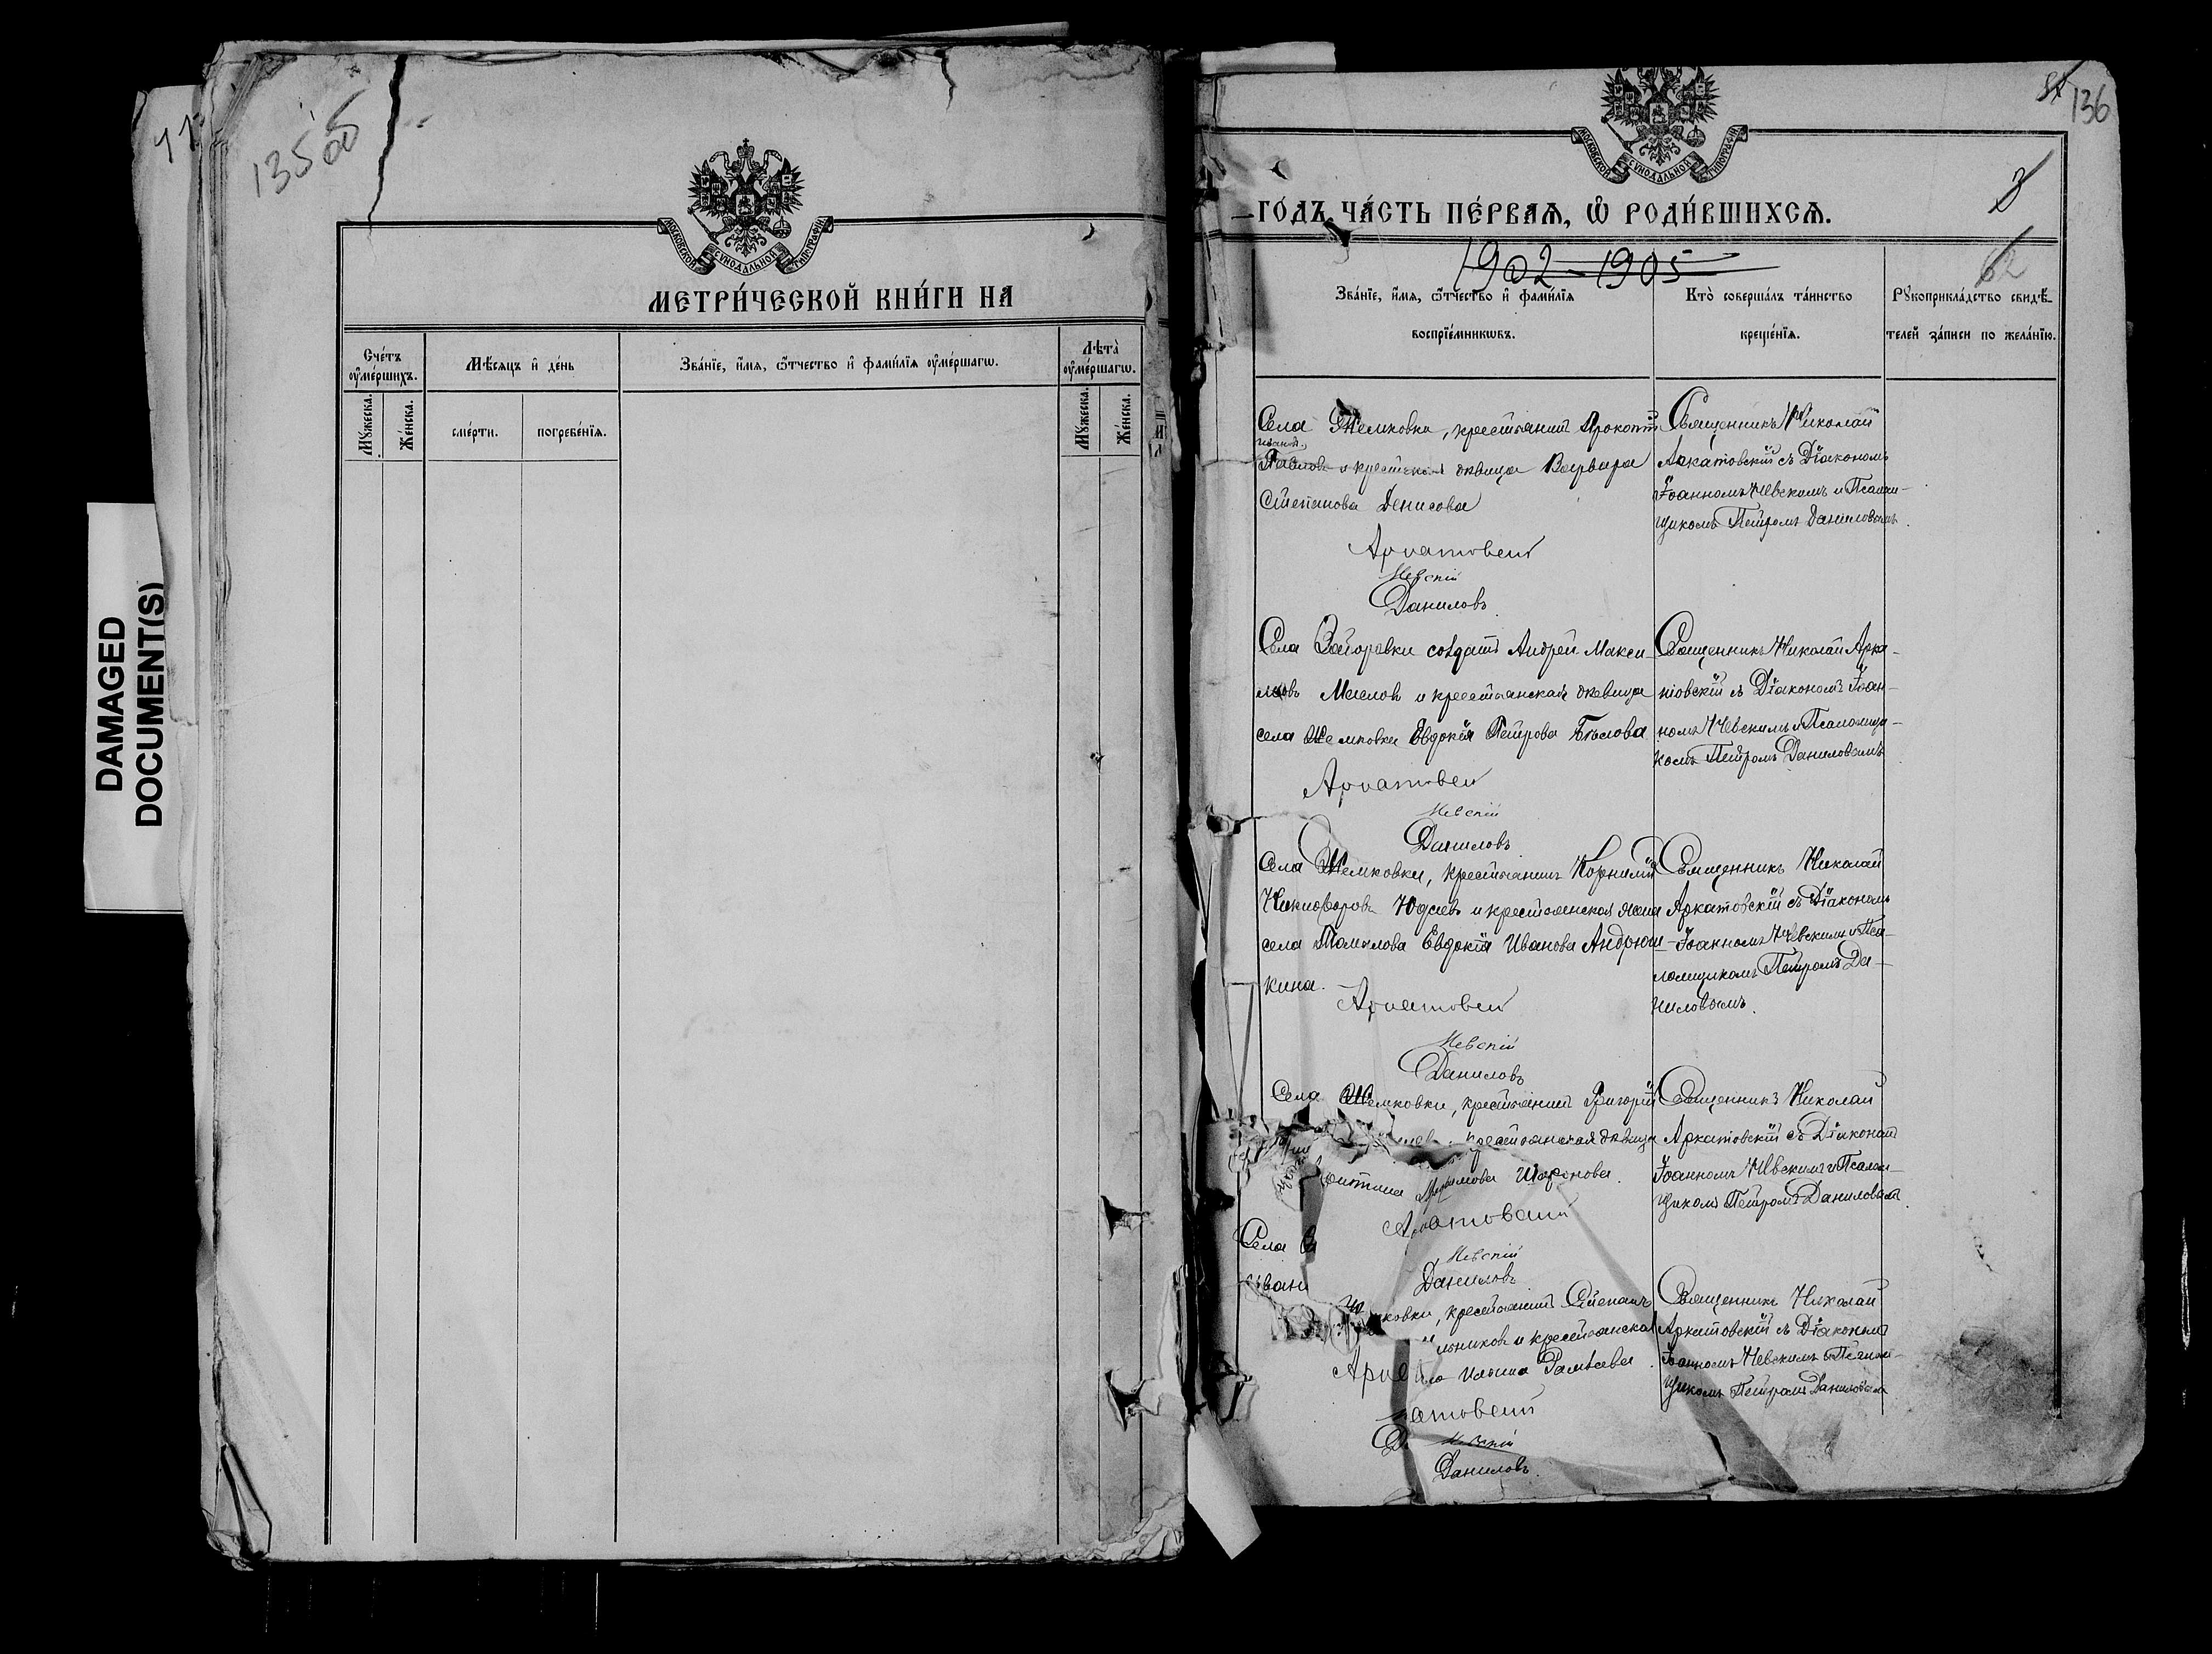 DAMAGED
DOCUMENT(S)
135 об
МОСКОВСКОЙ СѴНОДАЛЬНОЙ ТИПОГРАФІИ
МЕТРИ́ЧЕСКОЙ КНИ́ГИ НА
Сче́тъ
оу҆ме́ршихъ.
Мѣ́сяцъ и҆ де́нь
Зва́нїе, и҆́мя, ѻ҆́тчество и҆ фами́лїя оу҆ме́ршагѡ.
Лѣта̀
оу҆ме́ршагѡ.
Мꙋ́жеска.
Же́нска.
сме́рти.
погребе́нїя.
Мꙋ́жеска.
Же́нска.
136
МОСКОВСКОЙ СѴНОДАЛЬНОЙ ТИПОГРАФІИ
3
ГО́ДЪ, ЧА́СТЬ ПЕ́РВАѦ, Ѡ҆ РОДИ́ВШИХСѦ.
1902-1905
62
Зва́нїе, и҆́мя, ѻ҆́тчество и҆ фами́лїя
воспрїе́мникѡвъ.
Кто̀ соверша́лъ та́инство
креще́нїя.
Рꙋкоприкла́дство свидѣ́-
телей за́писи по жела́нїю.
Села Жемковки, крестьянинъ Прокопій
Павловъ и крестьянская дѣвица Варвара
Степанова Денисова
Аркатовскій
Невскій
Даниловъ
Священникъ Николай
Аркатовскій съ Діакономъ
Іоанномъ Невскимъ и Псалом-
щикомъ Петромъ Даниловымъ.
Села солдатъ Андрей Макси-
мовъ и крестьянская дѣвица
села Жемковки Евдокія Петрова Бѣлова
Аркатовскій
Невскій
Даниловъ
Священникъ Николай Арка-
товскій съ Діакономъ Іоан-
номъ Невскимъ и Псаломщи-
комъ Петромъ Даниловымъ
Села Жемковки, крестьянинъ Корнилій
Никифоровъ Юдаевъ и крестьянская жена
села Томылова Евдокія Иванова Андрюш-
кина.
Аркатовскій
Невскій
Даниловъ
Священникъ Николай
Аркатовскій съ Діакономъ
Іоанномъ Невскимъ и Пса-
ломщикомъ Петромъ Да-
ниловымъ.
Села Жемковки, крестьянинъ Григорій
крестьянская дѣвица
Шаронова.
Аркатовскій
Невскій
Даниловъ
Священникъ Николай
Аркатовскій съ Діакономъ
Іоанномъ Невскимъ и Псалом-
щикомъ Петромъ Даниловымъ.
Села
ковки, крестьянинъ Степанъ
и крестьянская
Ильина
атовскій
Невскій
Даниловъ.
Священникъ Николай
Аркатовскій съ Діакономъ
Іоанномъ Невскимъ и Псалом-
щикомъ Петромъ Даниловымъ